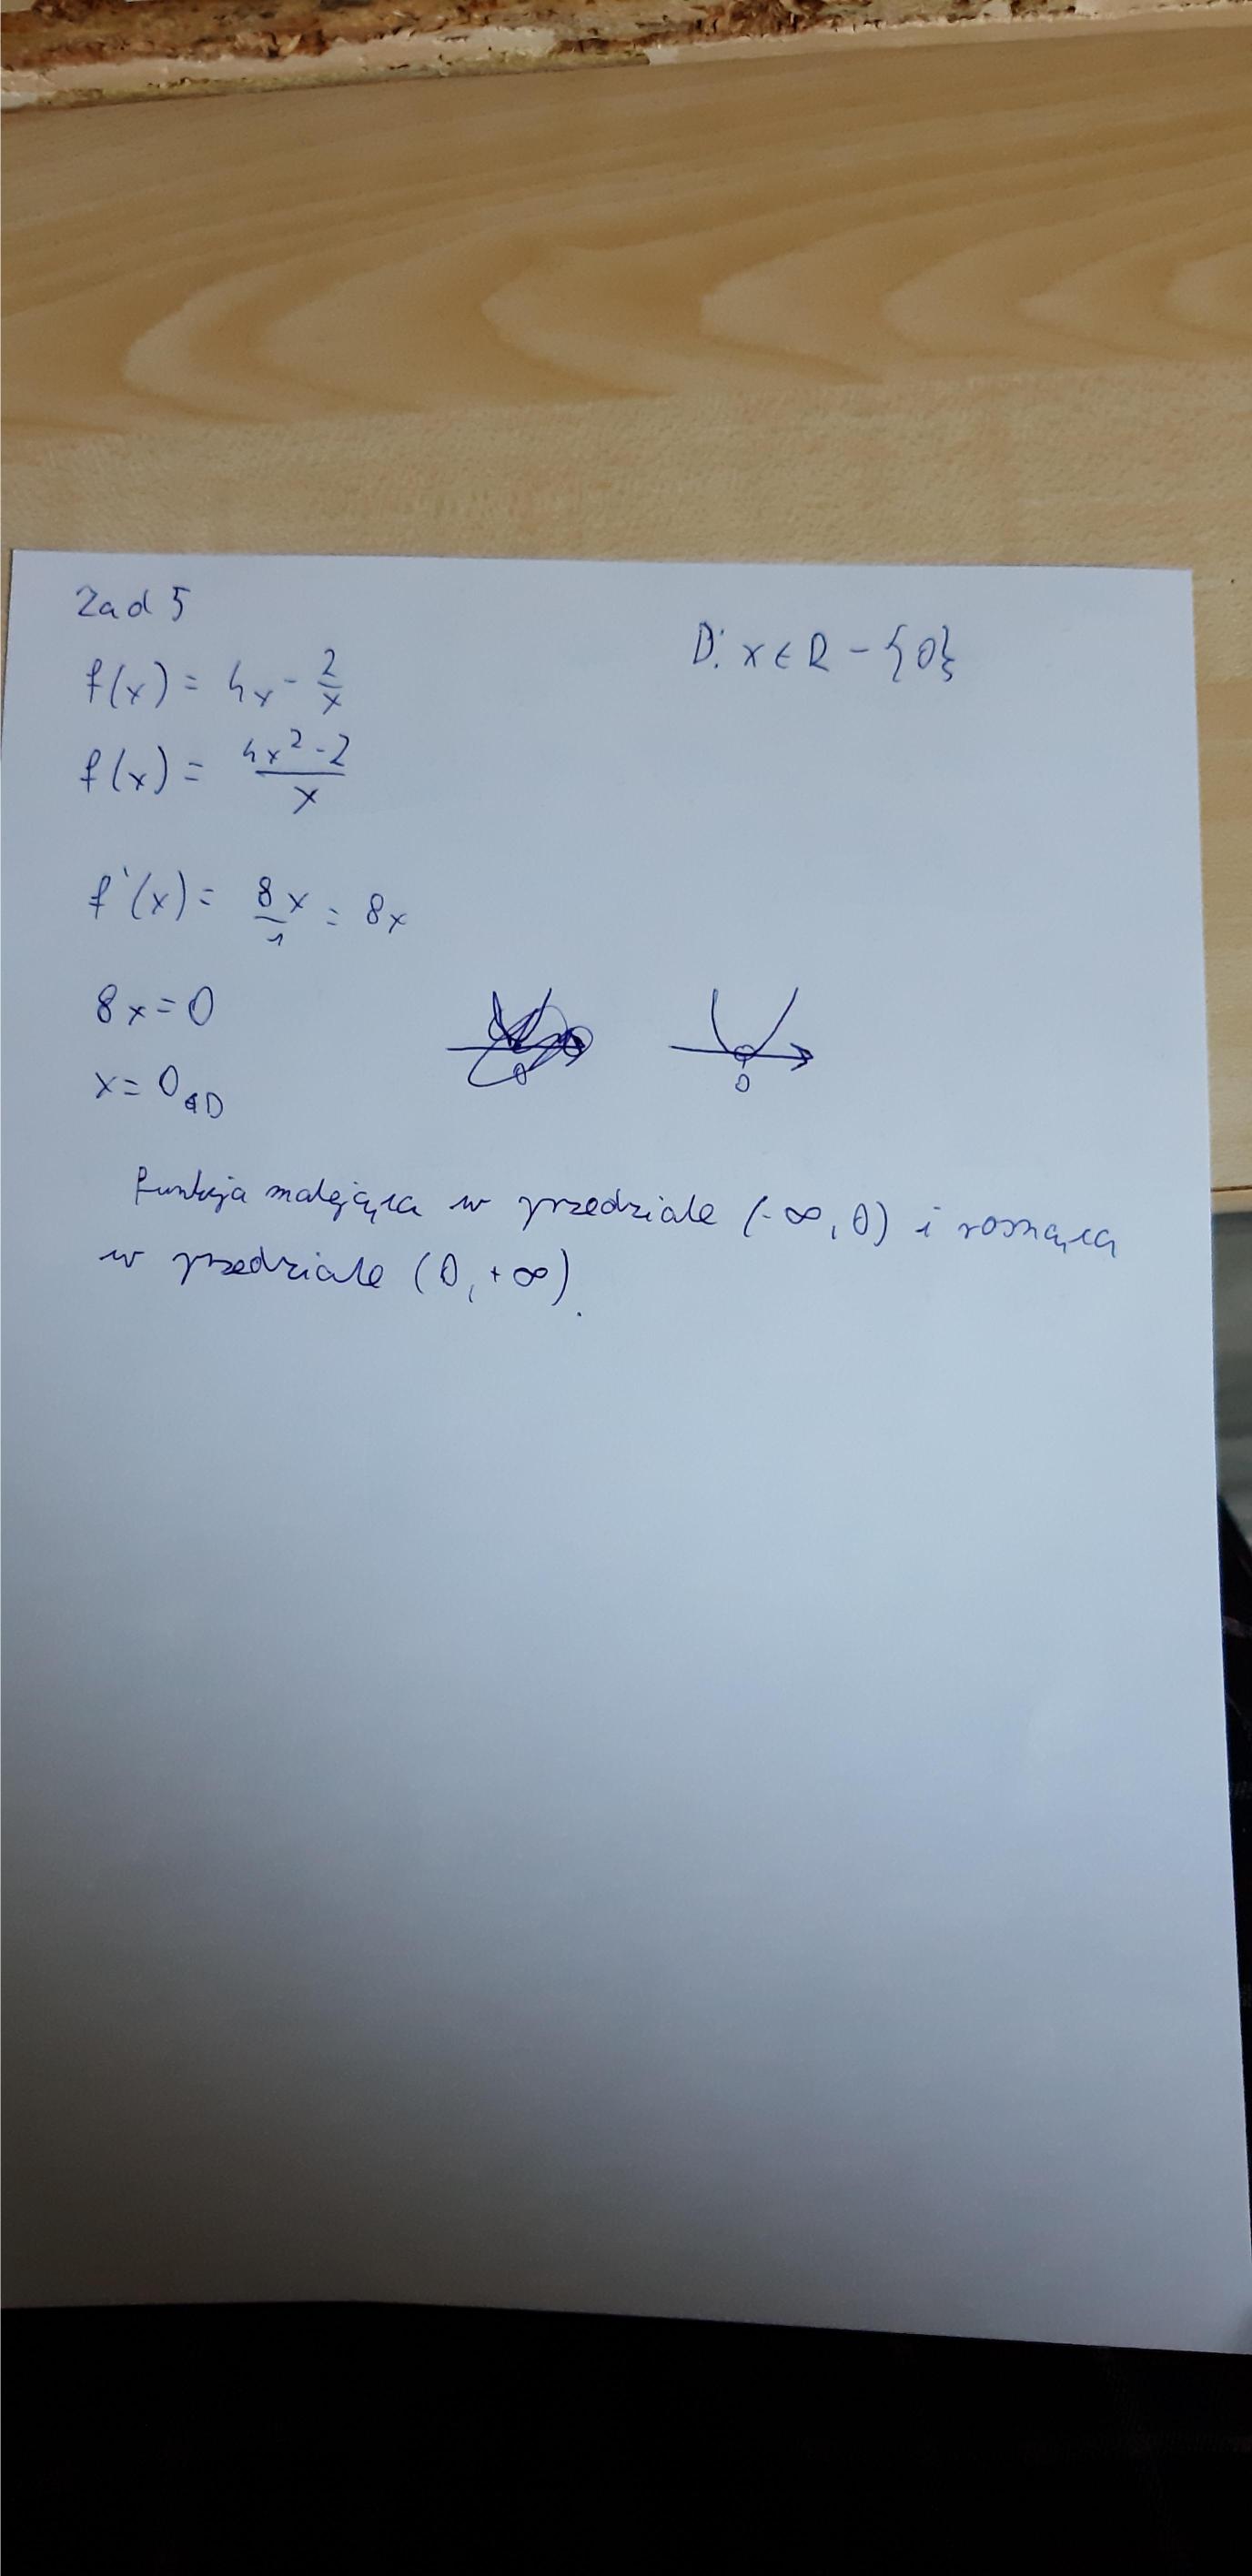 Zad 5
D: x ∈ R - {0}
f(x) = 4x - 2/x
f(x) = (4x² - 2)/x
f'(x) = 8x/1 = 8x
8x = 0
x = 0 ∉ D
0
0
Funkcja malejąca w przedziale (-∞, 0) i rosnąca
w przedziale (0, +∞).